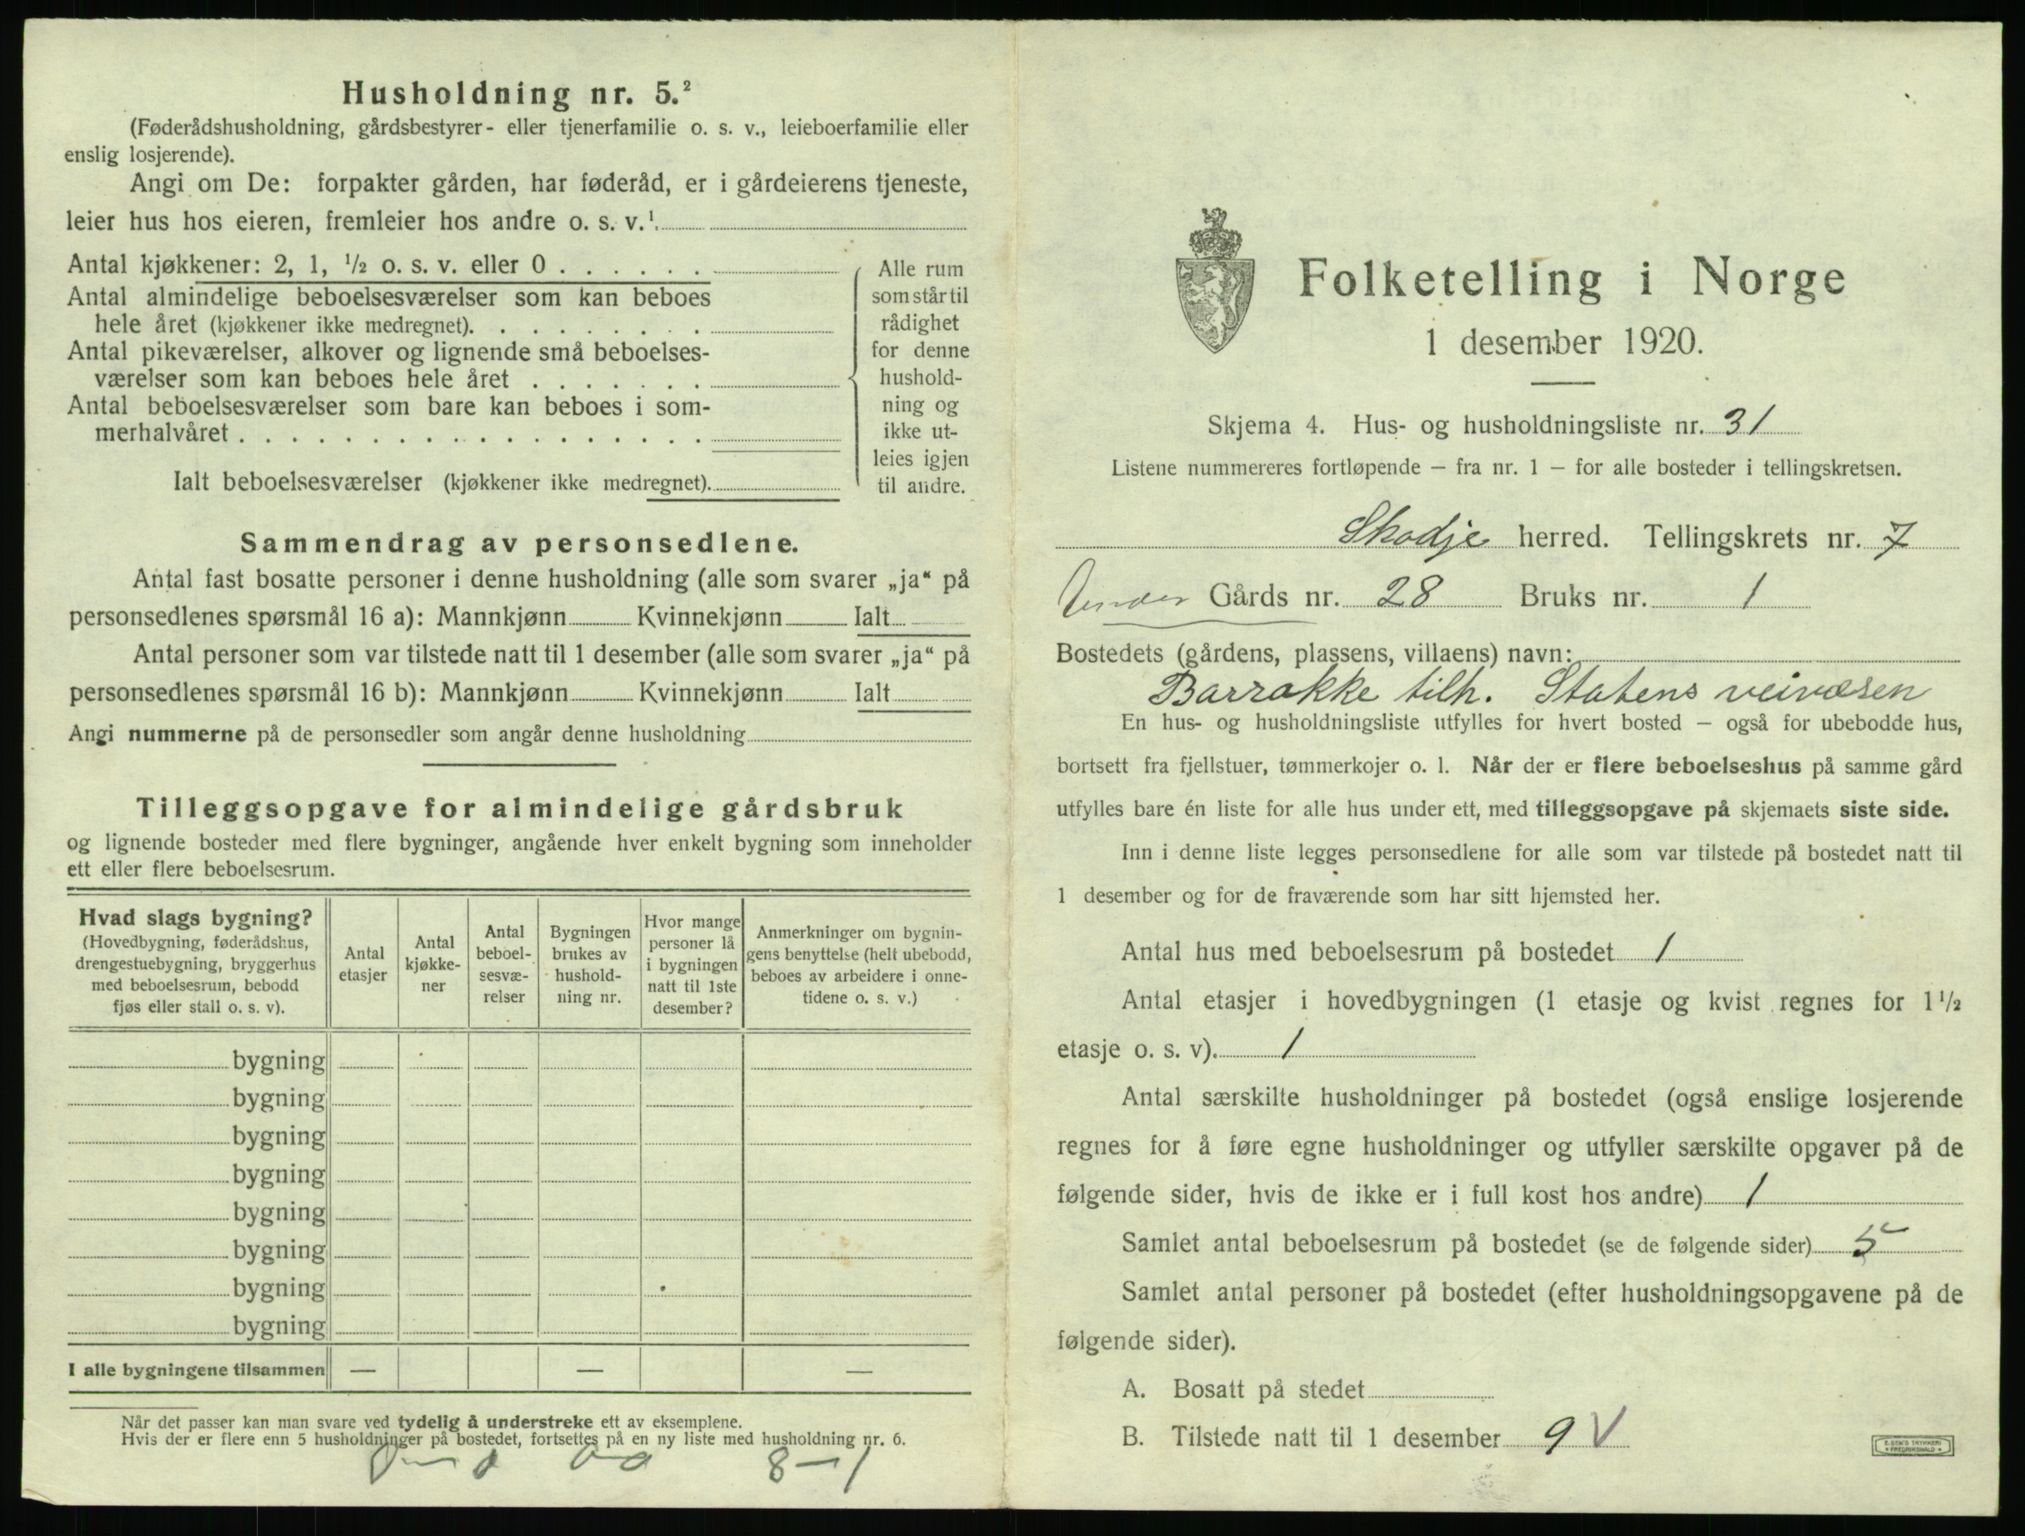 Husholdning nr. 5.²
(Føderådshusholdning, gårdsbestyrer- eller tjenerfamilie o. s. v., leieboerfamilie eller
enslig losjerende).
Angi om De: forpakter gården, har føderåd, er i gårdeierens tjeneste,
leier hus hos eieren, fremleier hos andre o. s. v.¹
Antal kjøkkener: 2, 1, ½ o. s. v. eller 0 . . . . . .
Antal almindelige beboelsesværelser som kan beboes
hele året (kjøkkener ikke medregnet). . . . . . . .
Antal pikeværelser, alkover og lignende små beboelses-
værelser som kan beboes hele året . . . . . . .
Antal beboelsesværelser som bare kan beboes i som-
merhalvåret . . . . . . . . . . . . . . . . . .
Ialt beboelsesværelser (kjøkkener ikke medregnet).
Alle rum
som står til
rådighet
for denne
hushold-
ning og
ikke ut-
leies igjen
til andre.
Sammendrag av personsedlene.
Antal fast bosatte personer i denne husholdning (alle som svarer „ja“ på
personsedlenes spørsmål 16 a): Mannkjønn Kvinnekjønn Ialt
Antal personer som var tilstede natt til 1 desember (alle som svarer „ja“ på
personsedlenes spørsmål 16 b): Mannkjønn Kvinnekjønn Ialt
Angi nummerne på de personsedler som angår denne husholdning
Tilleggsopgave for almindelige gårdsbruk
og lignende bosteder med flere bygninger, angående hver enkelt bygning som inneholder
ett eller flere beboelsesrum.
Hvad slags bygning?
(Hovedbygning, føderådshus,
drengestuebygning, bryggerhus
med beboelsesrum, bebodd
fjøs eller stall o. s. v).
Antal
etasjer
Antal
kjøkke-
ner
Antal
beboel-
sesvæ-
relser
Bygningen
brukes av
hushold-
ning nr.
Hvor mange
personer lå
i bygningen
natt til 1ste
desember?
Anmerkninger om bygnin-
gens benyttelse (helt ubebodd,
beboes av arbeidere i onne-
tidene o. s. v.)
bygning
bygning
bygning
bygning
bygning
bygning
bygning
bygning
I alle bygningene tilsammen — — —
Når det passer kan man svare ved tydelig å understreke ett av eksemplene.
Hvis der er flere enn 5 husholdninger på bostedet, fortsettes på en ny liste med husholdning nr. 6.
8 — 1
Folketelling i Norge
1 desember 1920.
Skjema 4. Hus- og husholdningsliste nr. 31
Listene nummereres fortløpende — fra nr. 1 — for alle bosteder i tellingskretsen.
Skodje herred. Tellingskrets nr. 7
Under Gårds nr. 28 Bruks nr. 1
Bostedets (gårdens, plassens, villaens) navn:
Barrakke tilh. Statens veivæsen
En hus- og husholdningsliste utfylles for hvert bosted — også for ubebodde hus,
bortsett fra fjellstuer, tømmerkojer o. l. Når der er flere beboelseshus på samme gård
utfylles bare én liste for alle hus under ett, med tilleggsopgave på skjemaets siste side.
Inn i denne liste legges personsedlene for alle som var tilstede på bostedet natt til
1 desember og for de fraværende som har sitt hjemsted her.
Antal hus med beboelsesrum på bostedet 1
Antal etasjer i hovedbygningen (1 etasje og kvist regnes for 1½
etasje o. s. v). 1
Antal særskilte husholdninger på bostedet (også enslige losjerende
regnes for å føre egne husholdninger og utfyller særskilte opgaver på de
følgende sider, hvis de ikke er i full kost hos andre) 1
Samlet antal beboelsesrum på bostedet (se de følgende sider) 5
Samlet antal personer på bostedet (efter husholdningsopgavene på de
følgende sider).
A. Bosatt på stedet
B. Tilstede natt til 1 desember 9 V